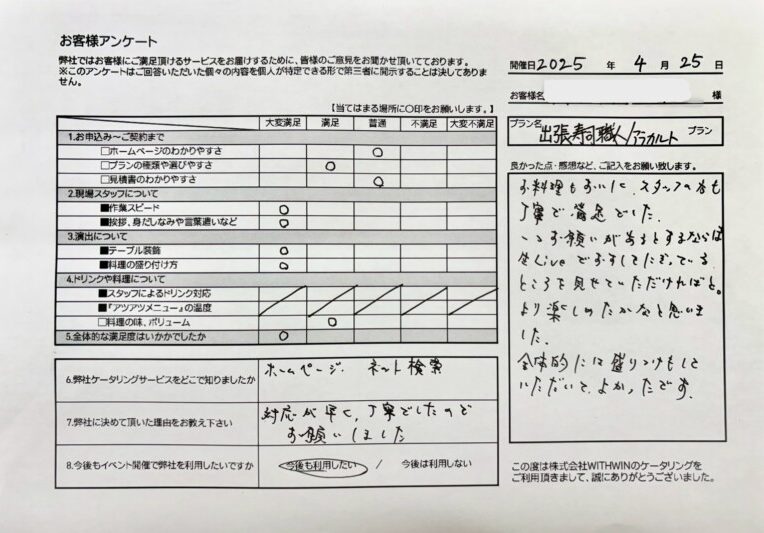 お客様アンケート
弊社ではお客様にご満足頂けるサービスをお届けするために、皆様のご意見をお聞かせ頂いております。
※このアンケートはご回答いただいた個々の内容を個人が特定できる形で第三者に開示することは決してありません。
開催日2025 年 4 月 25 日
お客様名 様
プラン名 出張寿司職人/アラカルト プラン
【当てはまる場所に〇印をお願いします。】
大変満足 満足 普通 不満足 大変不満足
1.お申込み～ご契約まで
□ホームページのわかりやすさ ○
□プランの種類や選びやすさ ○
□見積書のわかりやすさ ○
2.現場スタッフについて
■作業スピード ○
■挨拶、身だしなみや言葉遣いなど ○
3.演出について
■テーブル装飾 ○
■料理の盛り付け方 ○
4.ドリンクや料理について
■スタッフによるドリンク対応
■「アツアツメニュー」の温度
□料理の味、ボリューム ○
5.全体的な満足度はいかがでしたか ○
6.弊社ケータリングサービスをどこで知りましたか ホームページ. ネット検索
7.弊社に決めて頂いた理由をお教え下さい 対応が早く、丁寧でしたので
お願いしました
8.今後もイベント開催で弊社を利用したいですか 今後も利用したい / 今後は利用しない
良かった点・感想など、ご記入をお願い致します。
お料理もおいしく、スタッフの方も
丁寧で満足でした.
1つお願いがあるとするならば
生Liveでおすしをにぎっている
ところを見せていただければと。
より楽しめたかなと思いま
した.
全体的には盛りつけもして
いただいて、よかったです.
この度は株式会社WITHWINのケータリングを
ご利用頂きまして、誠にありがとうございました。